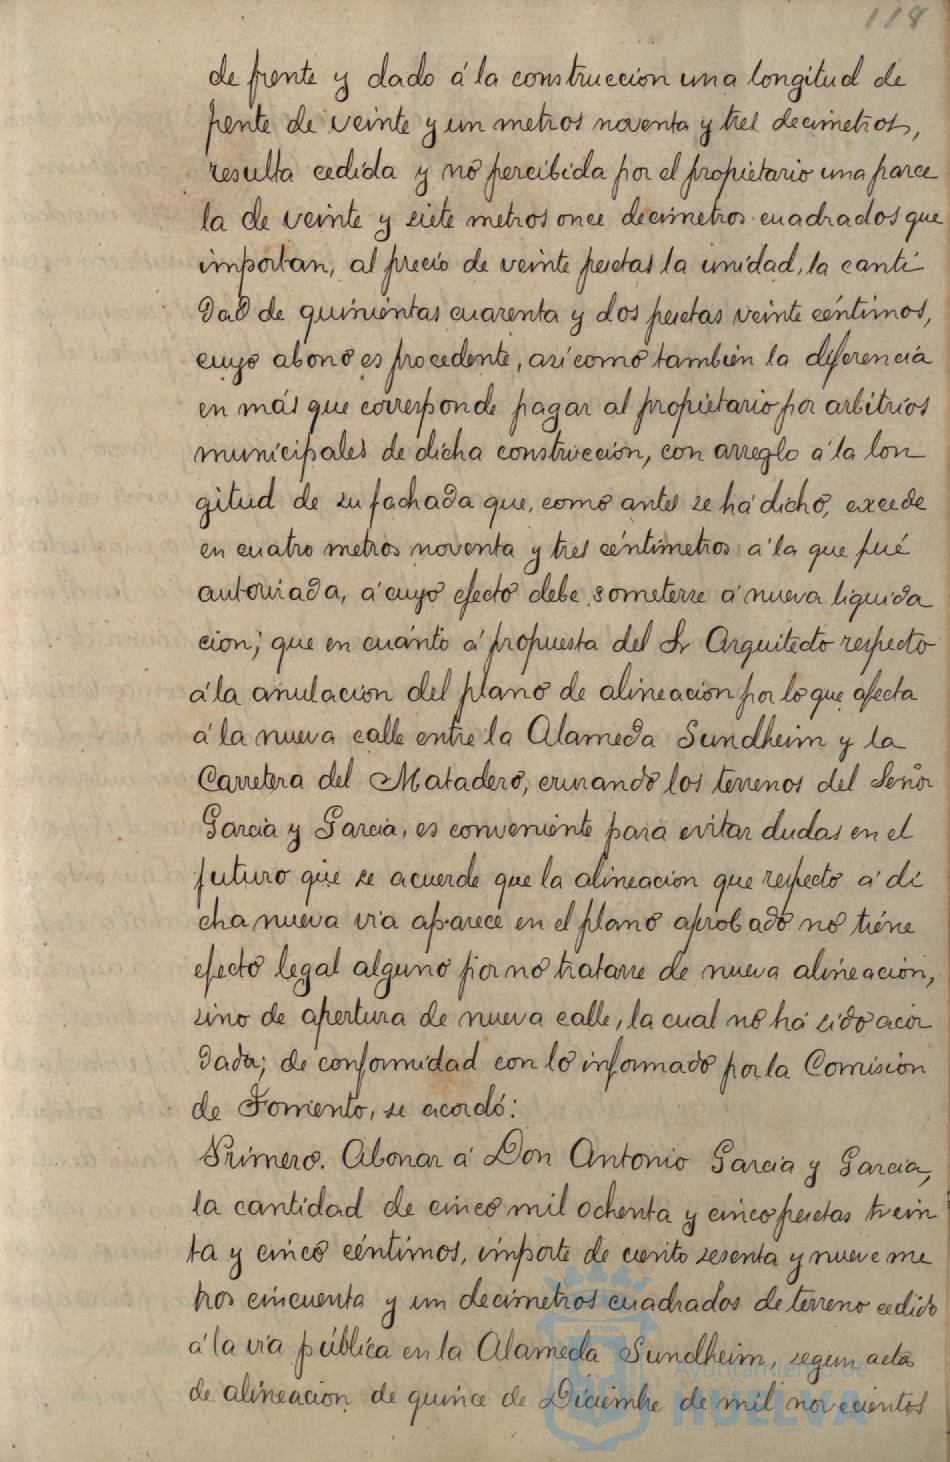 118
de frente y dado á la construccion una longitud de
frente de veinte y un metros noventa y tres decimetros,
resulta cedida y no percibida por el propietario una parce
la de veinte y siete metros once decimetros cuadrados que
importan, al precio de veinte pesetas la unidad, la canti
dad de quinientas cuarenta y dos pesetas veinte céntimos,
cuyo abono es procedente, así como también la diferencia
en más que corresponde pagar al propietario por arbitrios
municipales de dicha construcción, con arreglo á la lon
gitud de su fachada que, como antes se há dicho, excede
en cuatro metros noventa y tres céntimetros á la que fué
autorizada, á cuyo efecto debe someterse á nueva liquida
cion; que en cuánto á propuesta del Sr Arquitecto respecto
á la anulacion del plano de alineacion por lo que afecta
á la nueva calle entre la Alameda Sundheim y la
Carretera del Matadero, cruzando los terrenos del Señor
García y García, es conveniente para evitar dudas en el
futuro que se acuerde que la alineacion que respecto á di
cha nueva via aparece en el plano aprobado no tiene
efecto legal alguno por no tratarse de nueva alineación,
sino de apertura de nueva calle, la cual no há sido acor
dada; de conformidad con lo informado por la Comisión
de Fomento, se acordó:
Primero. Abonar á Don Antonio García y García,
la cantidad de cinco mil ochenta y cinco pesetas trein
ta y cinco céntimos, importe de ciento sesenta y nueve me
tros cincuenta y un decimetros cuadrados de terreno cedido
á la via pública en la Alameda Sundheim, segun acta
de alineacion de quince de Diciembre de mil novecientos
Ayuntamiento de
HUELVA